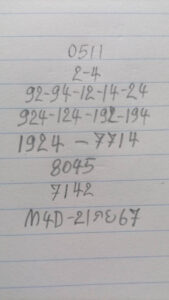 0511
2-4
92-94-12-14-24
924-124-192-194
1924-7714
8045
7142